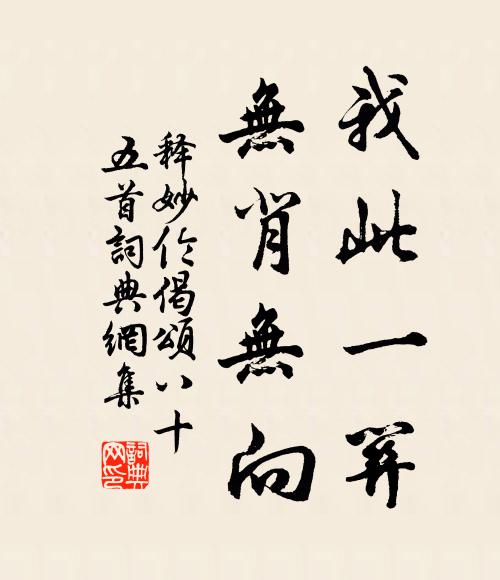 我此一筭
無背無向
释妙伦偈頌八十
五首詞典網集
詞典
网印